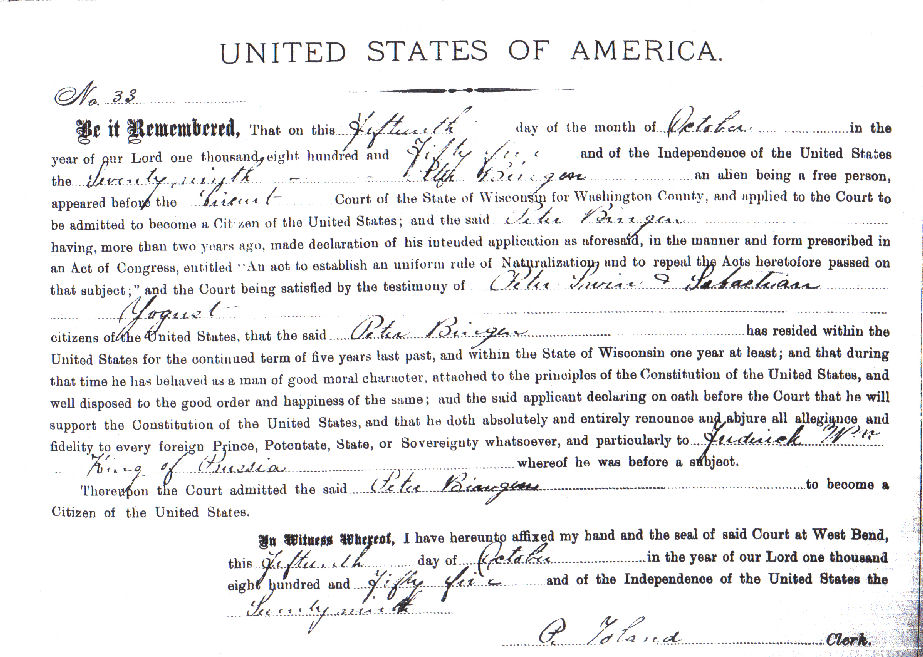 UNITED STATES OF AMERICA.
No. 33
Be it Remembered, That on this Fifteenth day of the month of October in the
year of our Lord one thousand eight hundred and Fifty five and of the Independence of the United States
the Seventy ninth Peter Bingen an alien being a free person,
appeared before the Circuit Court of the State of Wisconsin for Washington County, and applied to the Court to
be admitted to become a Citizen of the United States; and the said Peter Bingen
having, more than two years ago, made declaration of his intended application as aforesaid, in the manner and form prescribed in
an Act of Congress, entitled "An act to establish an uniform rule of Naturalization, and to repeal the Acts heretofore passed on
that subject;" and the Court being satisfied by the testimony of Peter Irwin & Sebastian
Yogust
citizens of the United States, that the said Peter Bingen has resided within the
United States for the continued term of five years last past, and within the State of Wisconsin one year at least; and that during
that time he has behaved as a man of good moral character, attached to the principles of the Constitution of the United States, and
well disposed to the good order and happiness of the same; and the said applicant declaring on oath before the Court that he will
support the Constitution of the United States, and that he doth absolutely and entirely renounce and abjure all allegiance and
fidelity to every foreign Prince, Potentate, State, or Sovereignty whatsoever, and particularly to Frederick Wm
King of Prussia whereof he was before a subject.
Thereupon the Court admitted the said Peter Biangen to become a
Citizen of the United States.
In Witness Whereof, I have hereunto affixed my hand and the seal of said Court at West Bend,
this Fifteenth day of October in the year of our Lord one thousand
eight hundred and Fifty five and of the Independence of the United States the
Seventy ninth
P. Toland Clerk.